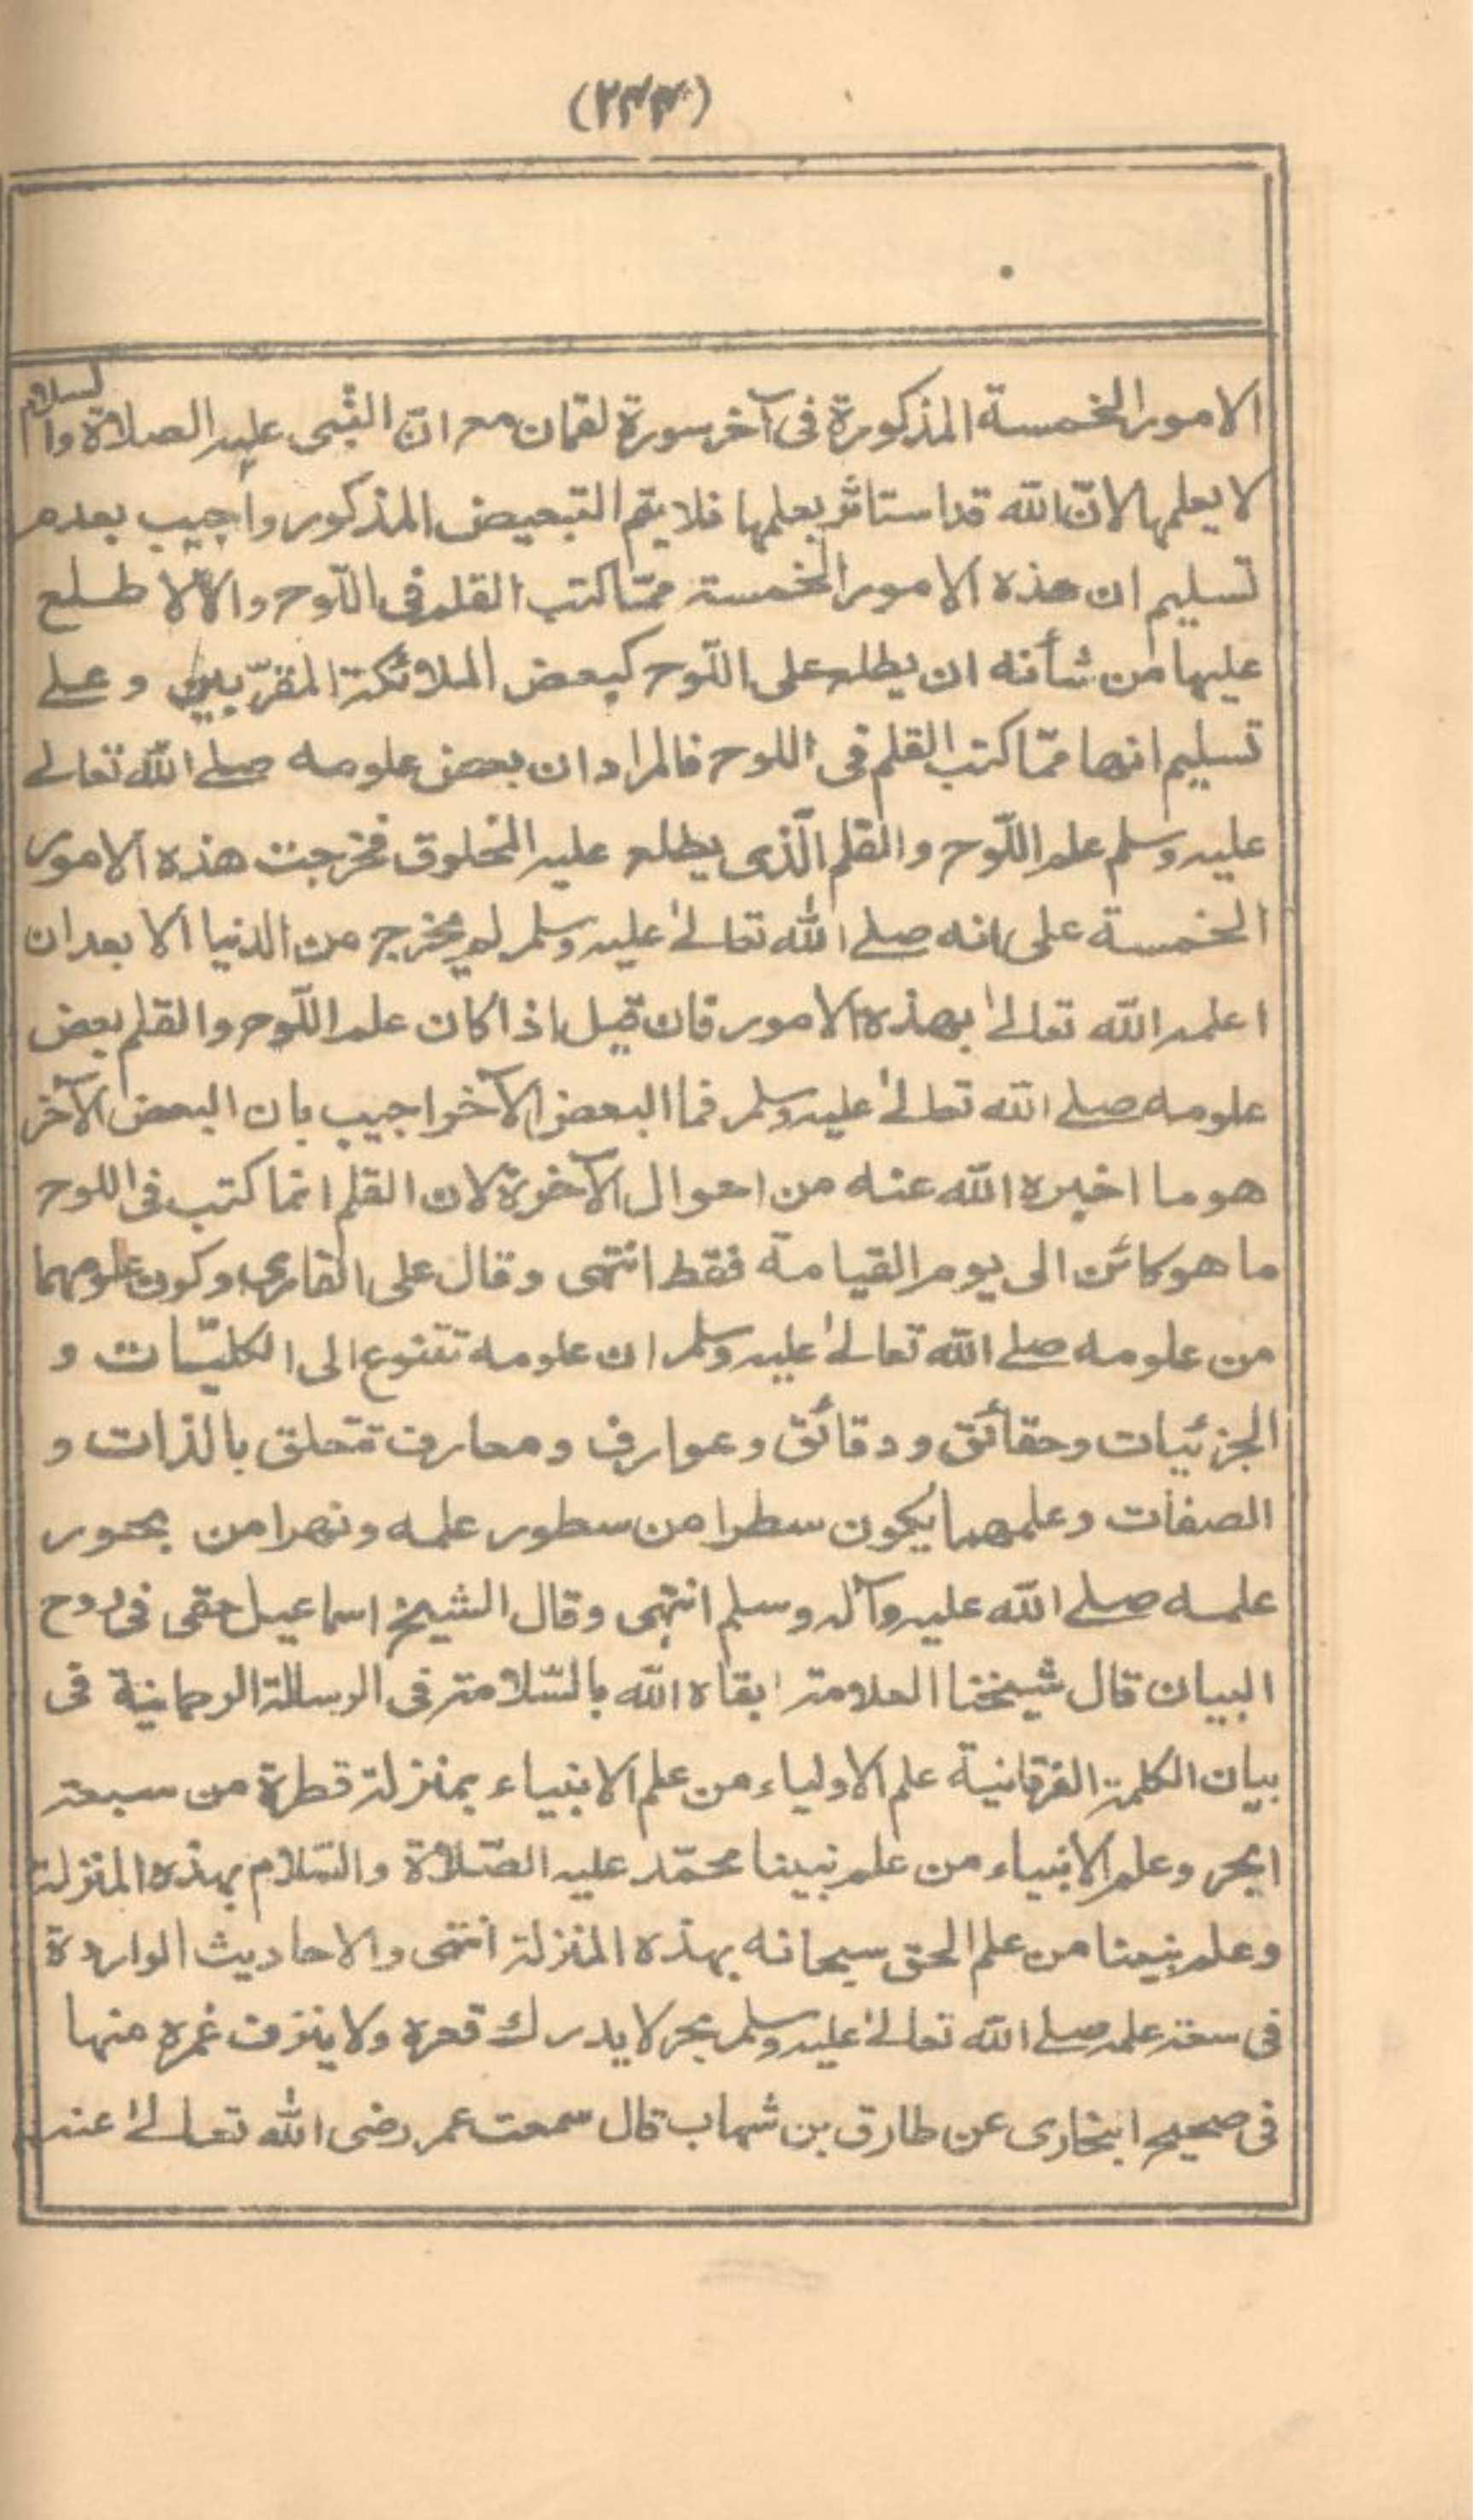 (۲۴۴)
الامور الخمسة المذكورة فى آخر سورة لقمان مع انّ النّبى عليه الصلاة والسلام
لا يعلمها لانّ الله قد استاثر بعلمها فلا يتم التبعيض المذكور واجيب بعدم
تسليم ان هذه الامور الخمسة ممّا كتب القلم فى اللّوح والّا لاطلع
عليها من شأنه ان يطلع على اللّوح كبعض الملائكة المقرّبين وعلى
تسليم انها ممّا كتب القلم فى اللوح فالمراد ان بعض علومه صلے الله تعالے
عليه وسلم علم اللّوح والقلم الّذى يطلع عليه المخلوق فخرجت هذه الامور
الخمسة على انه صلے الله تعالےٰ عليه وسلم لم يخرج من الدنيا الا بعد ان
اعلمه الله تعالےٰ بهذه الامور فان قيل اذا كان علم اللّوح والقلم بعض
علومه صلے الله تعالےٰ عليه وسلم فما البعض الآخر اجيب بان البعض الآخر
هو ما اخبره الله عنه من احوال الآخرة لان القلم انما كتب فى اللوح
ما هو كائن الى يوم القيامة فقط انتهى وقال على القارى وكون علومهما
من علومه صلے الله تعالےٰ عليه وسلم ان علومه تتنوع الى الكليّات و
الجزئيات وحقائق ودقائق وعوارف ومعارف تتعلق بالذات و
الصفات وعلمهما يكون سطرا من سطور علمه ونهرا من بحور
علمه صلے الله عليه وآله وسلم انتهى وقال الشيخ اسماعيل حقى فى روح
البيان قال شيخنا العلامة ابقاه الله بالسّلامة فى الرسالة الرحمانية فى
بيان الكلمة الفرقانية علم الاولياء من علم الانبياء بمنزلة قطرة من سبعة
ابحر وعلم الانبياء من علم نبينا محمّد عليه الصّلاة والسّلام بهذه المنزلة
وعلم نبينا من علم الحق سبحانه بهذه المنزلة انتهى والاحاديث الواردة
فى سعة علمه صلے الله تعالےٰ عليه وسلم بحر لا يدرك قعره ولا ينزف غمره منها
فى صحيح البخارى عن طارق بن شهاب قال سمعت عمر رضى الله تعالےٰ عنه